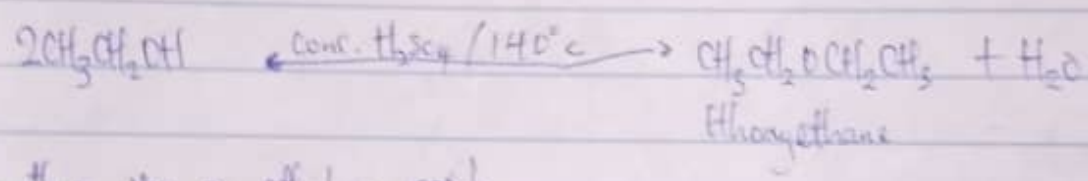 2CH₃CH₂OH conc. H₂SO₄ /140°c CH₃CH₂OCH₂CH₃ + H₂O
Ethoxyethane